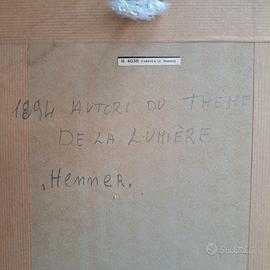 N 4036 FABRICA
1894 AUTORI DU THÈME
DE LA LUMIÈRE
Henner.
SUBITO